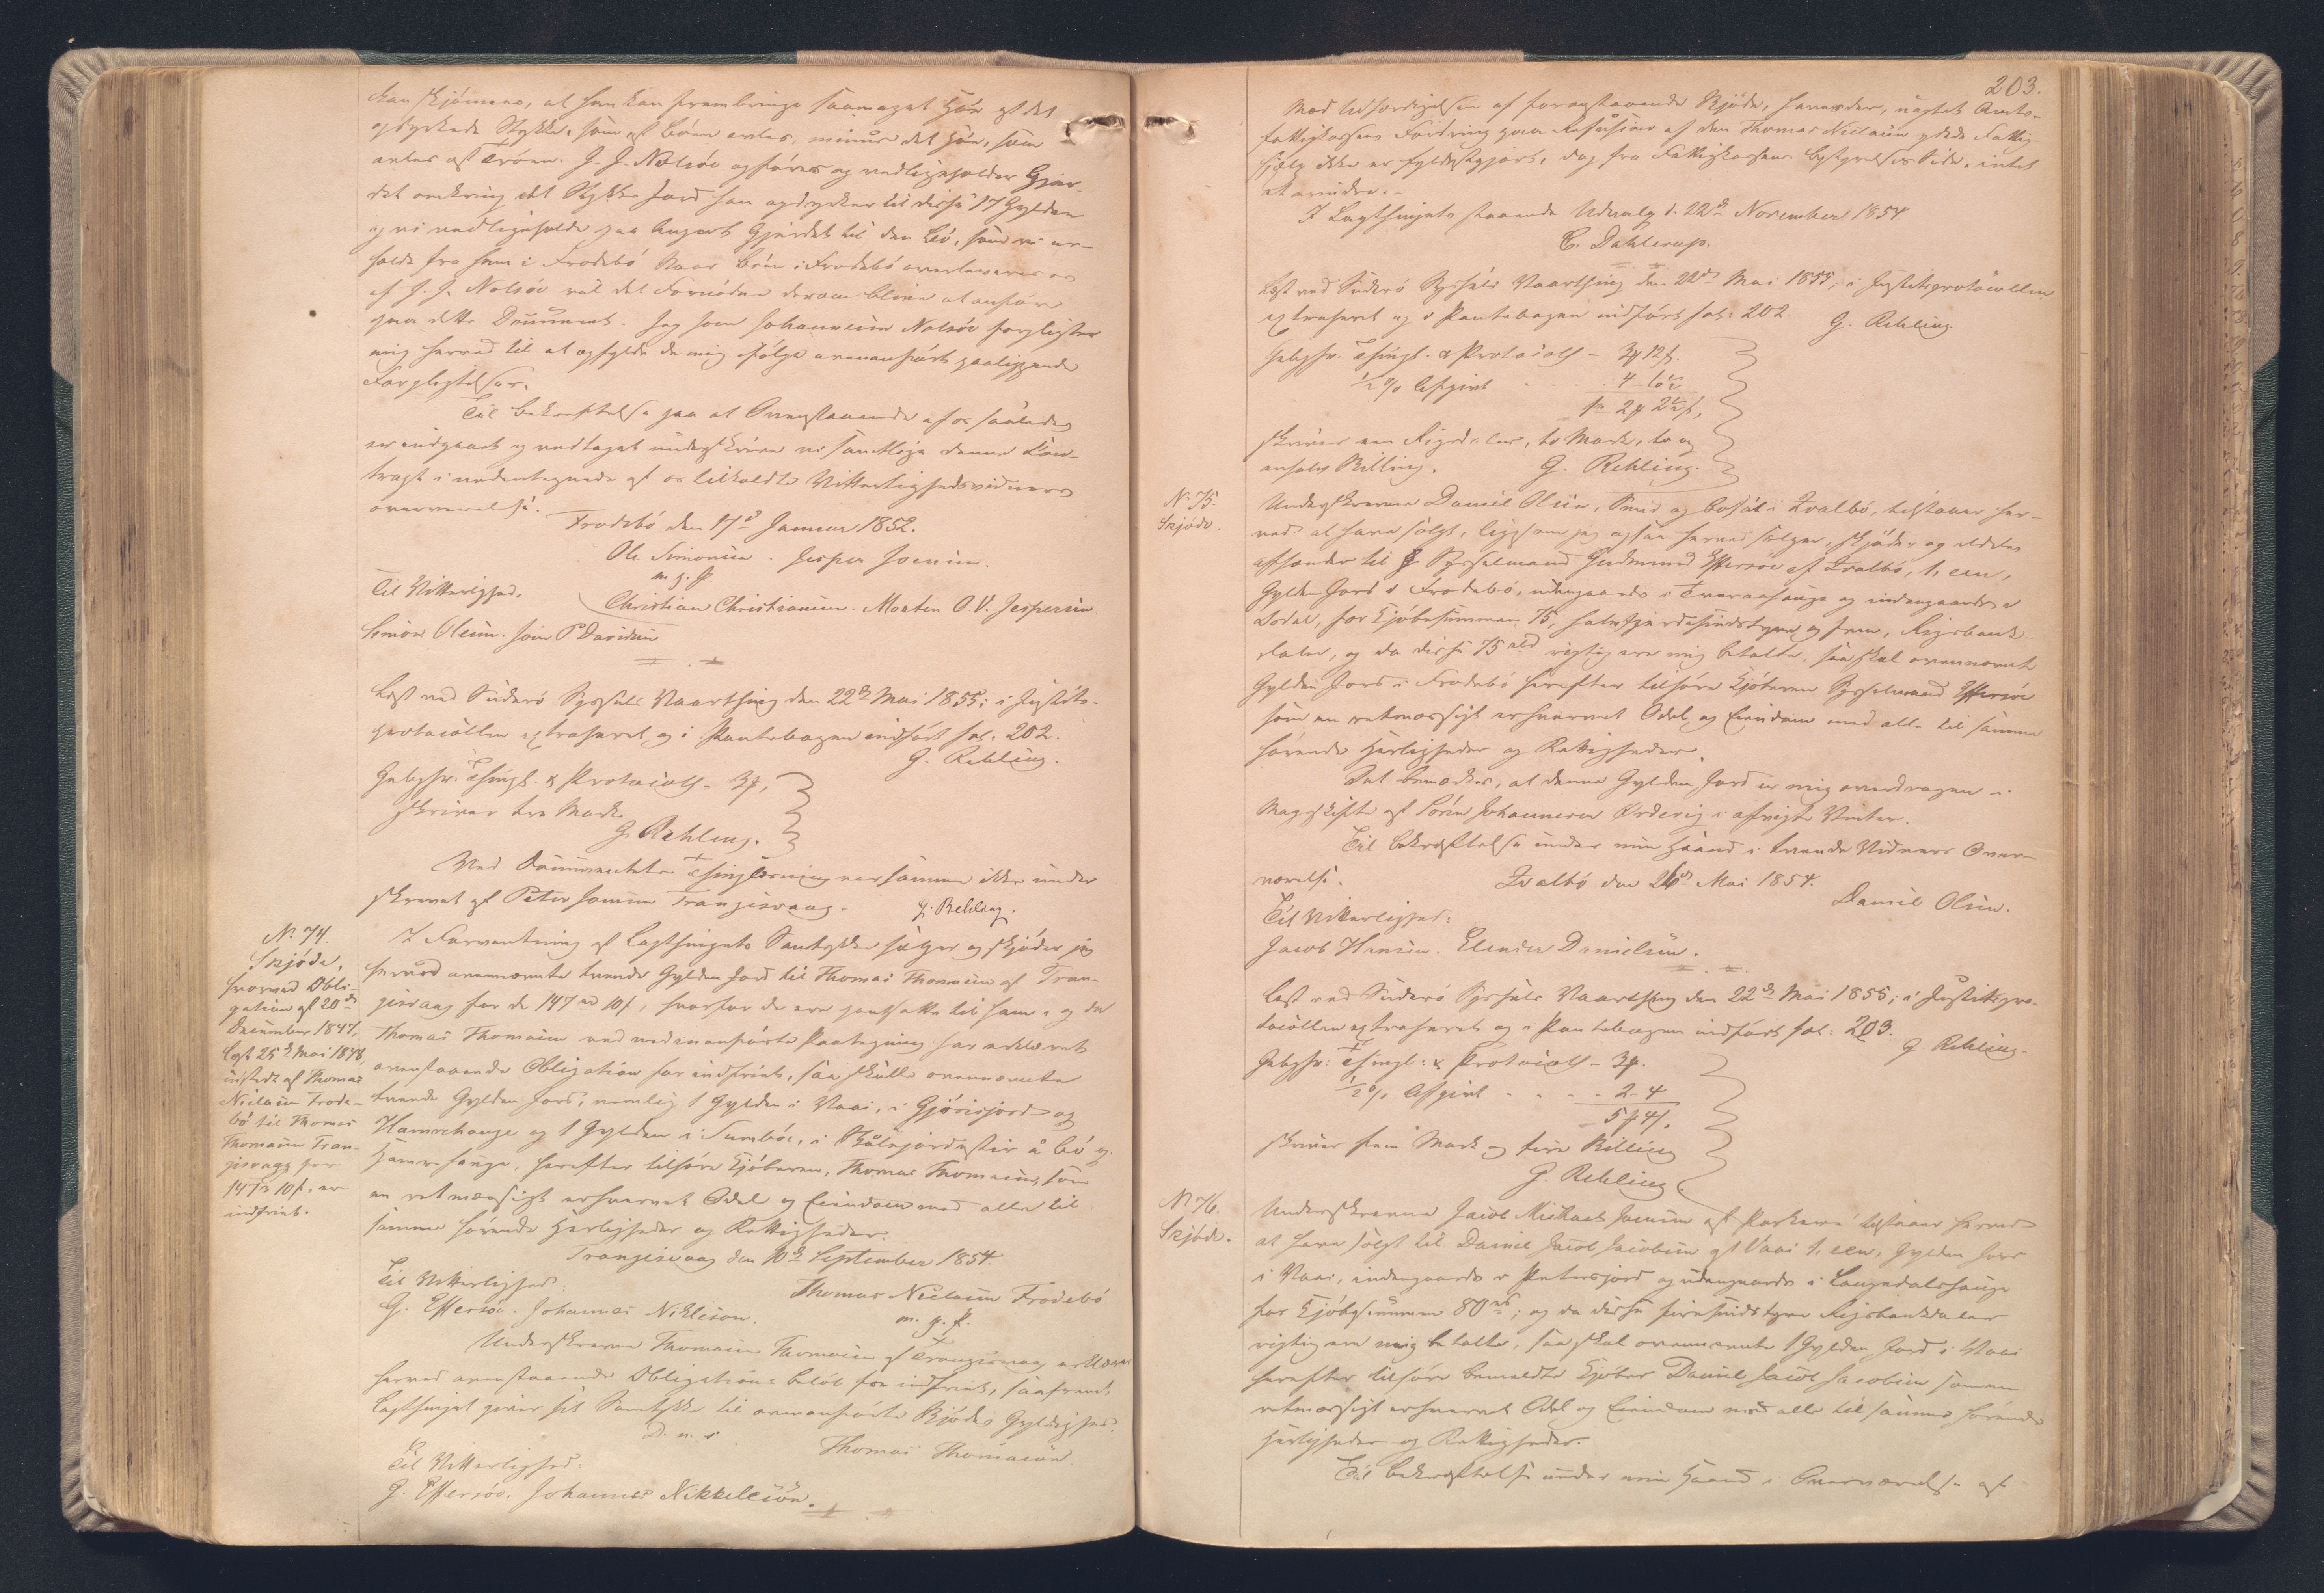 kan skjönnes, at han kan frembringe saameget Hö af det
opdyrkede Stykke, som af Böen avles, minus det Hö, som
avles af Tröen. J. J. Nolsöe opförer og vedligeholder Gjær-
det omkring det Stykke Jord han opdyrker til disse 17 Gylden
og vi vedligeholde paa den Böe, som vi er-
holde fra ham i Frodebö. Naar Böen i Frodebö overleveres os
af J. J. Nolsöe vil det Fornödne derom blive at anföre
paa dette Document. Jeg som Johannesen Nolsöe forpligter
mig herved til at opfylde de mig ifölge ovenanfört paaliggende
Forpligtelser.
Til Bekræftelse paa at Ovenstaaende af os saaledes
er indgaaet og vedtaget underskrive vi samtlige denne Con-
tragt i undertegnede af os tilkaldte Vitterlighedsvidners
overværelse.
Frodebö den 17de Januar 1852.
Ole Simonsen. Jesper Joensen.
m. f. P.
Til Vitterlighed,
Christian Christiansen. Morten O. V. Jespersen.
Simon Olesen. Joen P. Davidsen
Læst ved Suderö Syssels Vaarthing den 22de Mai 1855; i Justits-
protocollen extraheret og i Pantebogen indfört fol: 202.
G. Rehling.
Gebyhr: Thingl. & Protocoll - 3 ,
skriver tre Mark
G. Rehling.
Ved Documentets Thinglæsning var samme ikke under
skrevet af Peter Joensen Trangisvaag. G. Rehling.
No 74.
Skjöde,
hvorved Obli-
gation af 20de
December 1847,
læst 25de Mai 1848,
udstedt af Thomas
Nielsen Frode-
bö til Thomas
Thomasen Tran-
gisvaag for
147 10 f, er
indfriet.
I Forventning af Lagthingets Samtykke sælger og skjöder jeg
herved ovennævnte tvende Gylden Jord til Thomas Thomasen af Tran-
gisvaag for de 147 10 f, hvorfor de ere pantsatte til ham, og da
Thomas Thomasen ved nedenanförte Paategning har erklæret
ovenstaaende Obligation for indfriet, saa skulle ovennævnte
tvende Gylden Jord, nemlig 1 Gylden i Vaai, i Gjörisjord og
Hamrehauge og 1 Gylden i Sumböe, i Skålajord ustir å bö og
Hamrehauge, herefter tilhöre Kjöberen, Thomas Thomasen, som
en retmæssigt erhvervet Odel og Eiendom med alle til
samme hörende Herligheder og Rettigheder.
Trangisvaag den 10de September 1854.
Til Vitterlighed:
Thomas Nielsen Frodebö
G. Effersöe. Johannes Niklison.
m. f. P.
Underskrevne Thomas Thomasen af Trangisvaag erklærer
herved ovenstaaende Obligations Belöb for indfriet, saafremt
Lagthinget giver sit Samtykke til ovenanförte Skjödes Gyldighed.
D. u. s.
Thomas Thomasön.
Til Vitterlighed:
G. Effersöe. Johannes Nikkelsön.
203.
Mod Udfærdigelsen af foranstaaende Skjöde, haves der, uagtet Amts-
fattigkassens Fordring paa Refusion af den Thomas Nielsen ydede Fattig-
hjelp ikke er fyldestgjort, dog fra Fattigkassens Bestyrelses Side, intet
at erindre.
I Lagthingets staaende Udvalg d. 22de November 1854
C. Dahlerup.
Læst ved Suderö Syssels Vaarthing den 22de Mai 1855, i Justitsprotocollen
extraheret og i Pantebogen indfört fol: 202.
G. Rehling.
Gebyhr. Thingl. & Protocoll - 3 12 f.
½ % Afgivt . . . 4 - 6½
1 2 2½ f,
skriver een Rigsdaler, to Mark, to og
enhalv Skilling. G. Rehling.
No 75.
Skjöde.
Underskrevne Daniel Olsen, Smed og bosat i Qvalbö, tilstaaer her-
ved at have solgt, ligesom jeg ogsaa herved sælger, skjöder og aldeles
afhænder til Sysselmand Gudmund Effersöe af Qvalbö, 1, een,
Gylden Jord i Frodebö, udengaards i Tveraahauge og indengaards i
Dodal, for Kjöbesummen 75, halvfjerdsindstyve og fem, Rigsbank-
daler, og da disse 75 rbd rigtig ere mig betalte, saa skal ovennævnte
Gylden Jord i Frodebö herefter tilhöre Kjöberen Sysselmand Effersöe
som en retmæssigt erhvervet Odel og Eiendom med alle til samme
hörende Herligheder og Rettigheder.
Det bemærkes, at denne Gylden Jord er mig overdragen i
Mageskifte af Sören Johannesen Ørderig i afvigte Vinter.
Til Bekræftelse under min Haand i tvende Vidners Over-
værelse.
Qvalbö den 26de Mai 1854.
Daniel Olsen.
Til Vitterlighed:
Jacob Hansen. Elendus Danielsen.
Læst ved Suderö Syssels Vaarthing den 22de Mai 1855; i Justitspro-
tocollen extraheret og i Pantebogen indfört fol: 203.
G. Rehling.
Gebyhr: Thingl: & Protocoll - 3 .
½ % Afgivt . . . 2 - 4
5 4 f,
skriver fem Mark og fire Skilling
G. Rehling.
No 76.
Skjöde.
Underskrevne Jacob Michael Joensen af Porkere tilstaaer herved
at have solgt til Daniel Jacob Jacobsen af Vaai 1, een, Gylden Jord
i Vaai, indengaards i Petersjord og udengaards i Laugadalshauge
for Kjöbesummen 80 rbd; og da disse firesindstyve Rigsbankdaler
rigtig ere mig betalte, saa skal ovennævnte 1 Gylden Jord i Vaai
herefter tilhöre bemeldte Kjöber Daniel Jacob Jacobsen som en
retmæssigt erhvervet Odel og Eiendom med alle til samme hörende
Herligheder og Rettigheder.
Til Bekræftelse under min Haand i Overværelse af